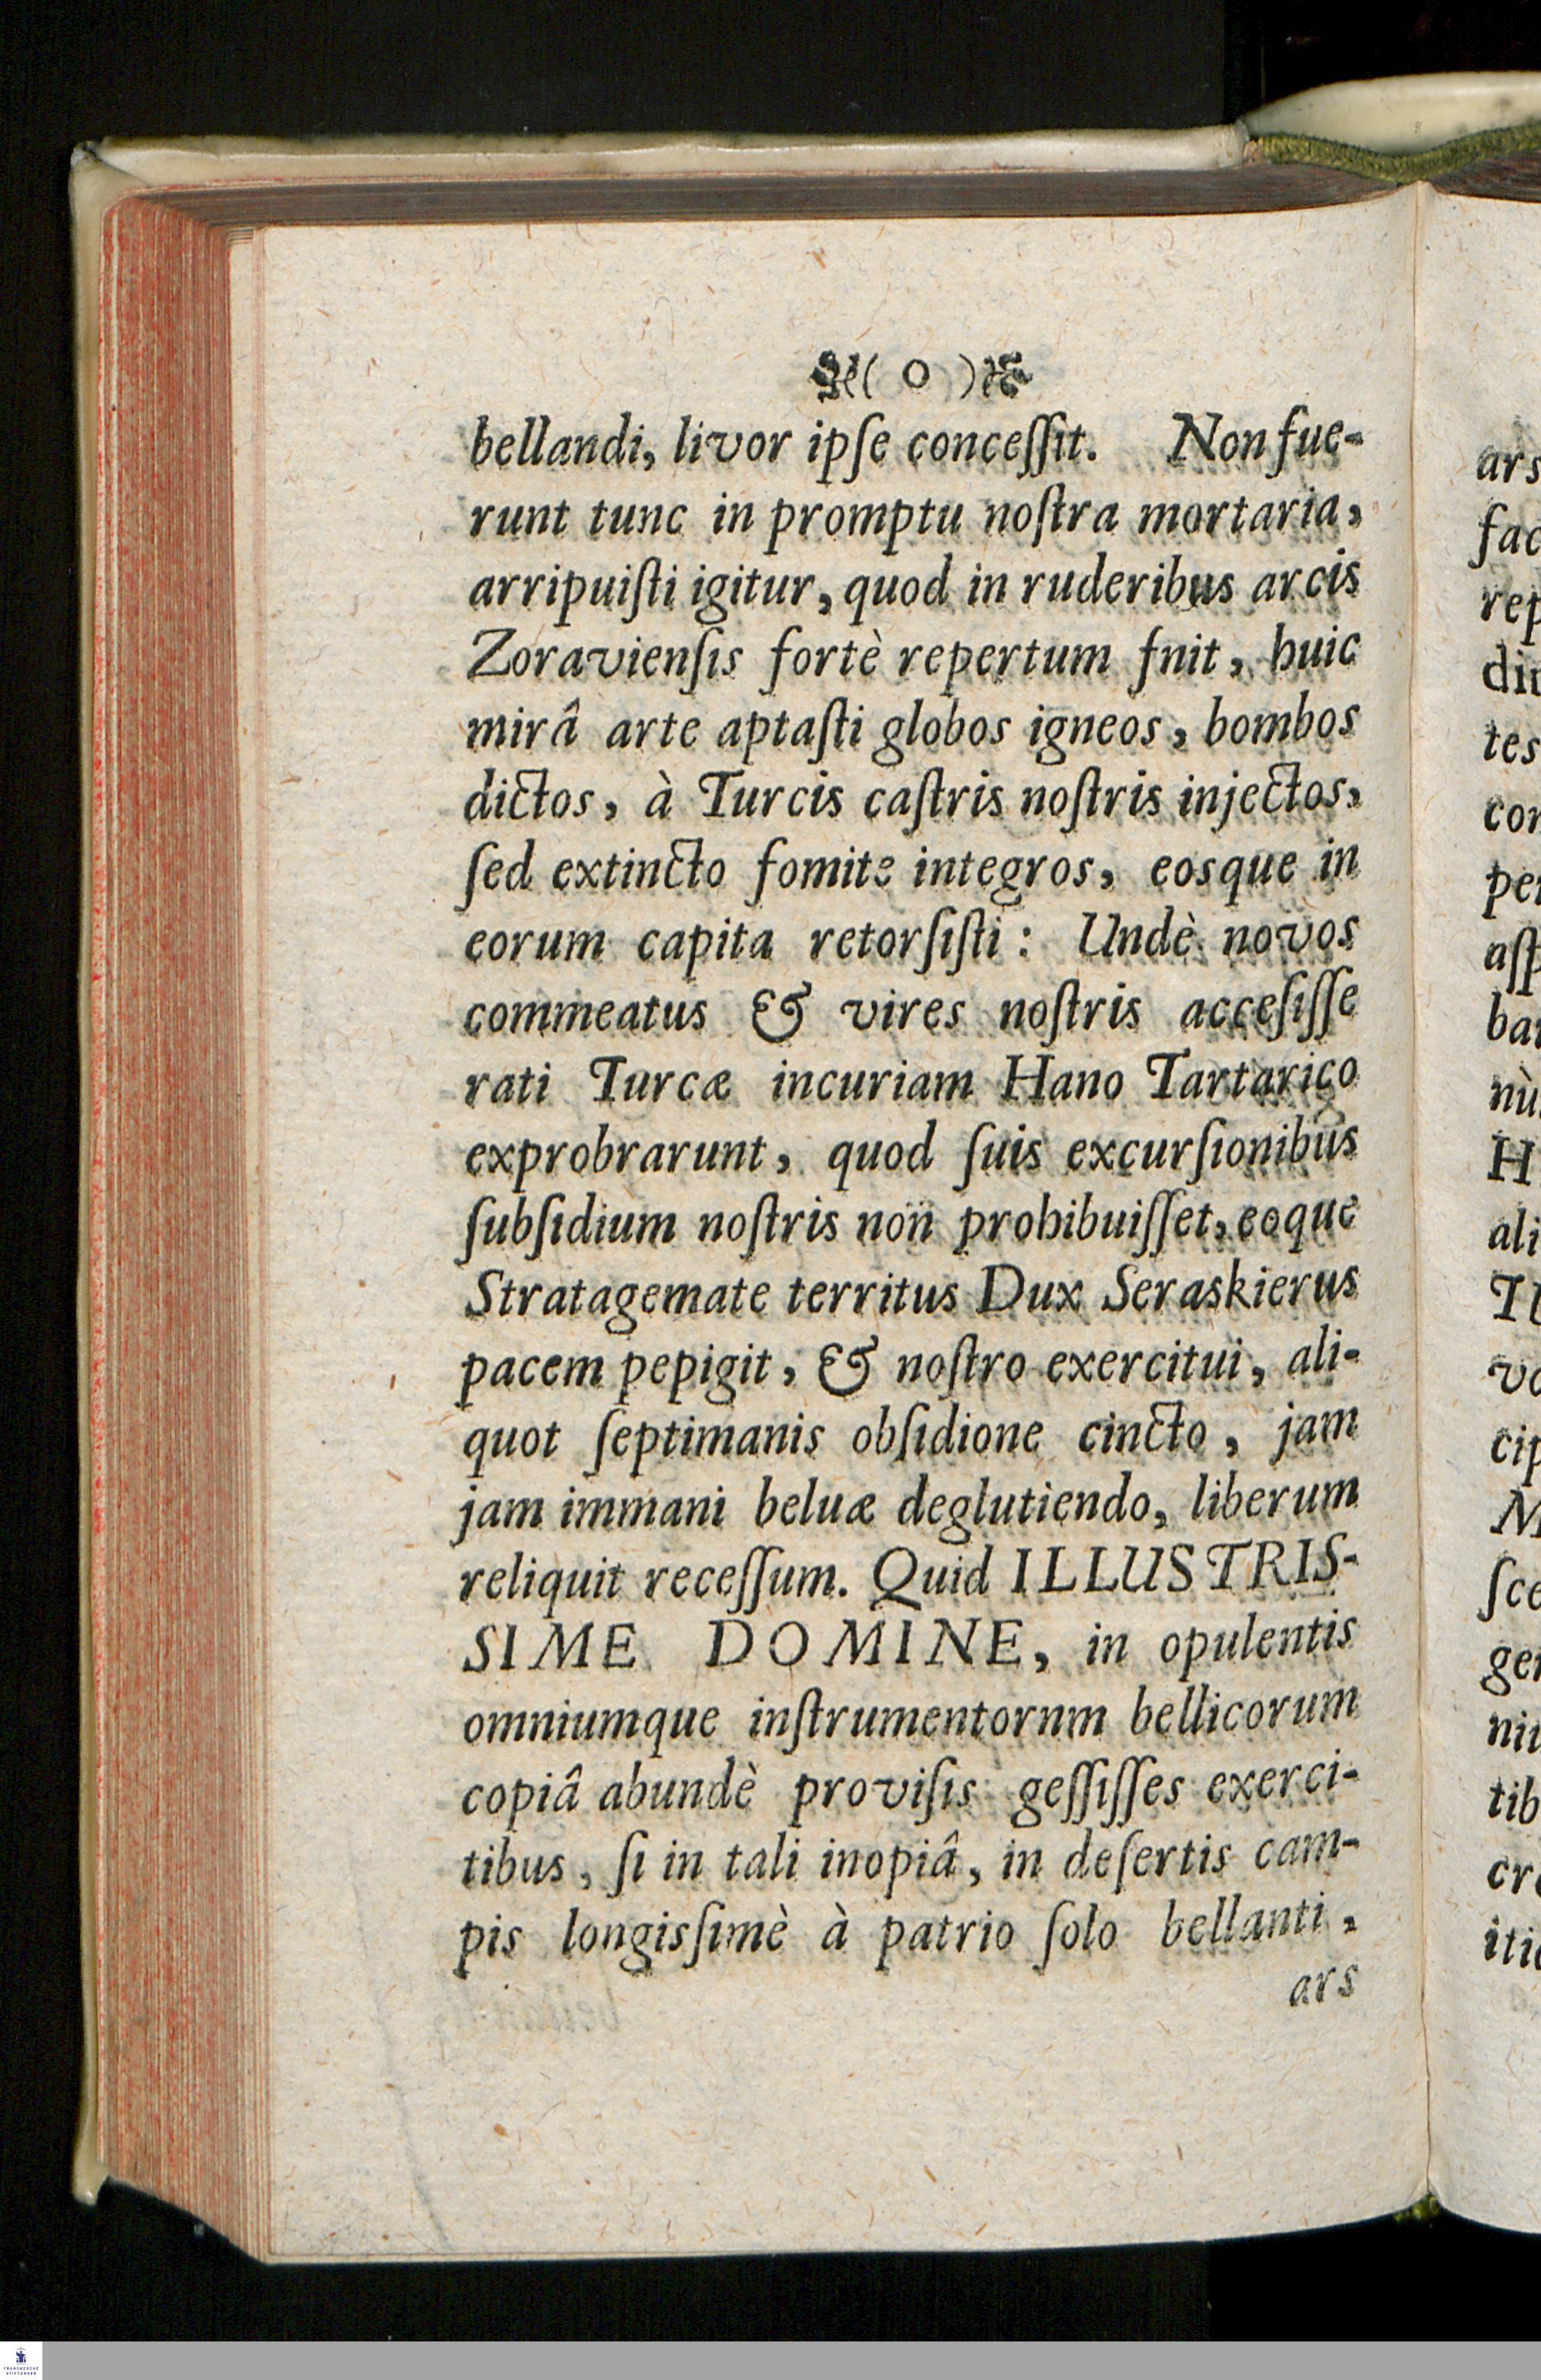 ( O )
bellandi, livor ipſe conceſſit. Non fue-
runt tunc in promptu noſtra mortaria,
arripuiſti igitur, quod in ruderibus arcis
Zoravienſis fortè repertum fnit, huic
mirâ arte aptaſti globos igneos, bombos
dictos, à Turcis caſtris noſtris injectos,
ſed extincto fomite integros, eosque in
eorum capita retorſiſti: Undè novos
commeatus & vires noſtris acceſiſſe
rati Turcæ incuriam Hano Tartarico
exprobrarunt, quod ſuis excurſionibus
ſubſidium noſtris non prohibuiſſet, eoque
Stratagemate territus Dux Seraskierus
pacem pepigit, & noſtro exercitui, ali-
quot ſeptimanis obſidione cincto, jam
jam immani beluæ deglutiendo, liberum
reliquit receſſum. Quid ILLUSTRIS-
SIME DOMINE, in opulentis
omniumque inſtrumentornm bellicorum
copiâ abundè proviſis geſſiſſes exerci-
tibus, ſi in tali inopiâ, in deſertis cam-
pis longisſimè à patrio ſolo bellanti,
ars
ars
fac
rep
diu
tes
con
per
aſp
bar
nù
H
ali
Tu
vo
cip
M
ſce
ger
niu
tib
cre
itio
FRANCKESCHE
STIFTUNGEN